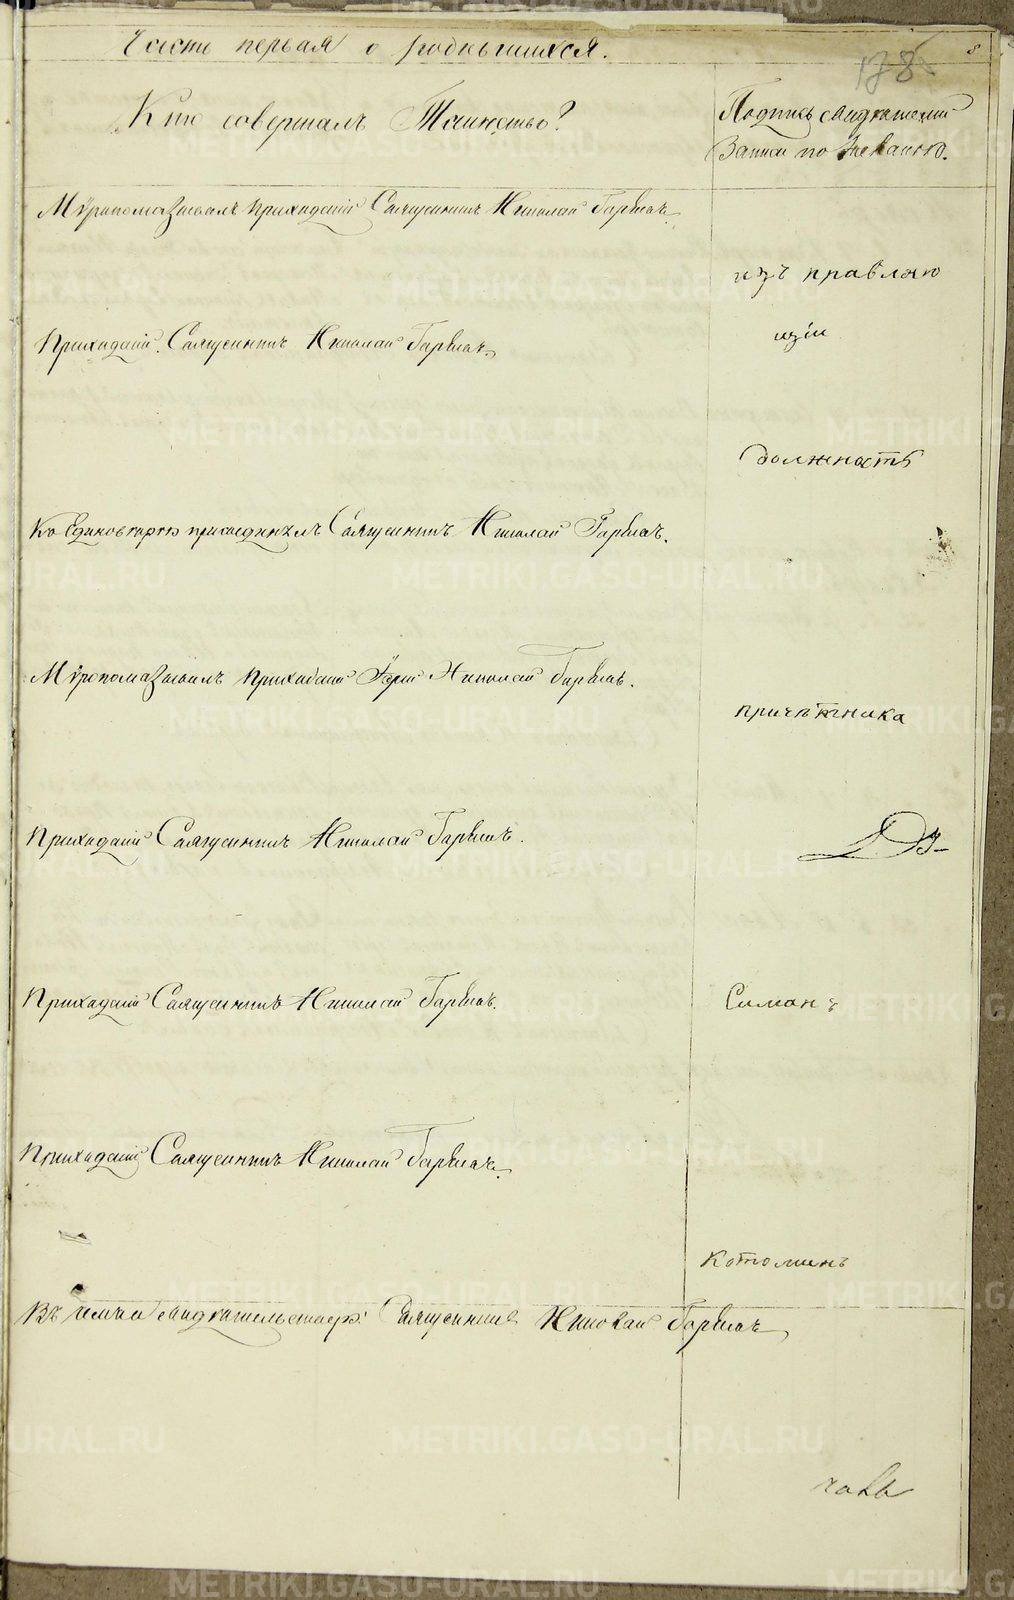 Часть первая о родившихся.
178
8
Кто совершалъ Таинство?
Подпись свидѣтелей
Записи по желанію.
Мѵропомазывалъ Приходскій Священникъ Николай
изъ правляю
щій
Приходскій Священникъ Николай
должность
Ко Единовѣрію присоединилъ Священникъ Николай
Мѵропомазывалъ Приходскій Іерей Николай
причетника
Приходскій Священникъ Николай
Приходскій Священникъ Николай
Симанъ
Приходскій Священникъ Николай
Котоминъ
Въ чемъ и свидѣтельствую: Священникъ Николай
METRIKI.GASO-URAL.RU